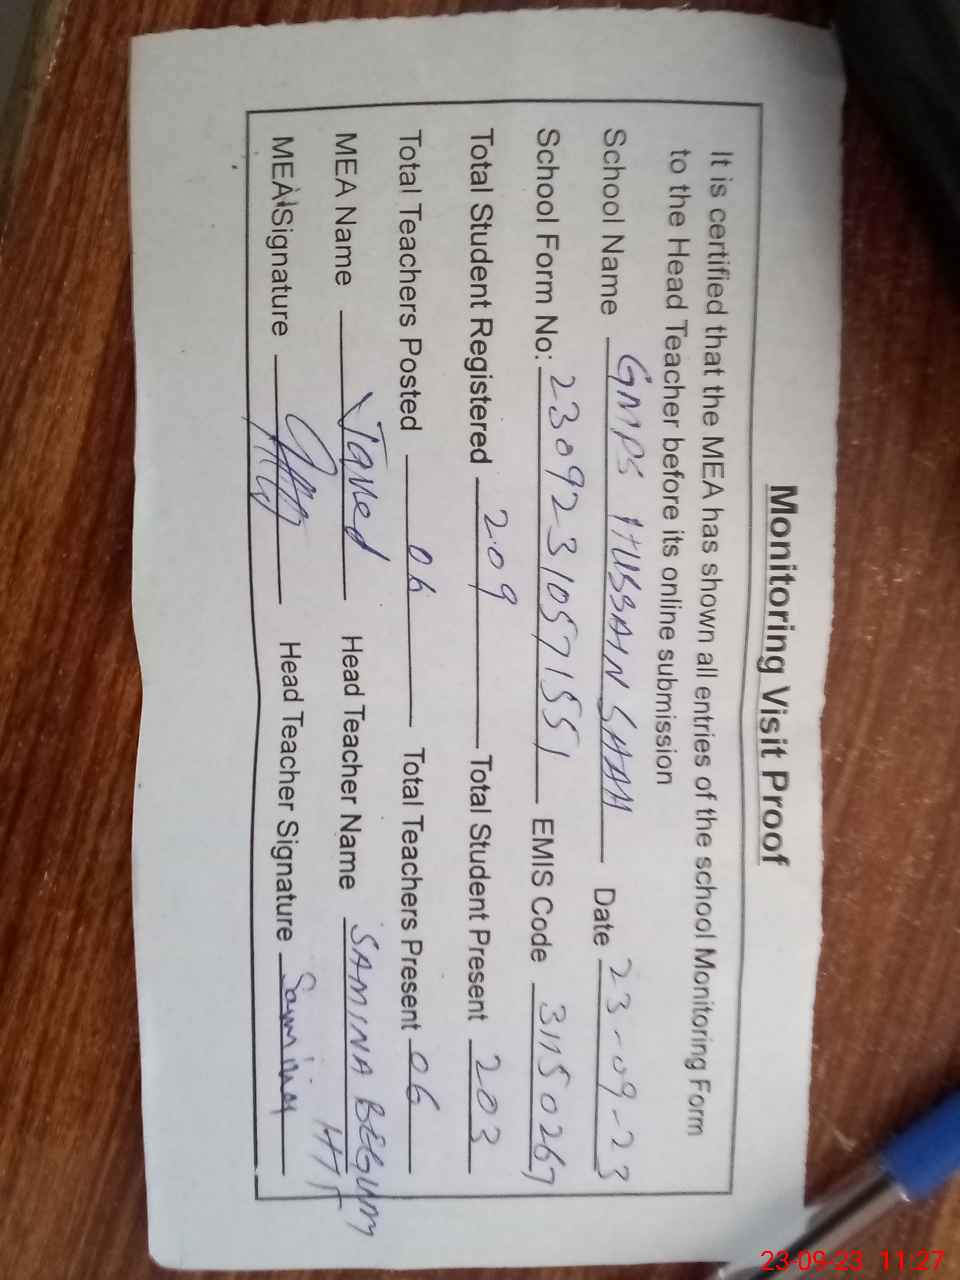 Monitoring Visit Proof
It is certified that the MEA has shown all entries of the school Monitoring Form
to the Head Teacher before its online submission
School Name GMPS HUSSAIN SHAH Date 23-09-23
School Form No: 23092310571551 EMIS Code 31150267
Total Student Registered 209 Total Student Present 203
Total Teachers Posted 06 Total Teachers Present 06
MEA Name Javed Head Teacher Name SAMINA BEGUM
MEA Signature Head Teacher Signature Samina
23-09-23 11:27